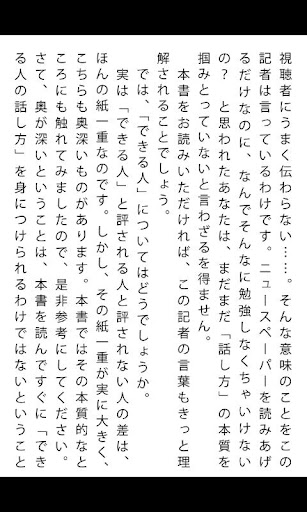 視聴者にうまく伝わらない……。そんな意味のことをこの
記者は言っているわけです。ニュースペーパーを読みあげ
るだけなのに、なんでそんなに勉強しなくちゃいけない
の? と思われたあなたは、まだまだ「話し方」の本質を
掴みとっていないと言わざるを得ません。
本書をお読みいただければ、この記者の言葉もきっと理
解されることでしょう。
では、「できる人」についてはどうでしょうか。
実は「できる人」と評される人と評されない人の差は、
ほんの紙一重なのです。しかし、その紙一重が実に大きく、
こちらも奥深いものがあります。本書ではその本質的なと
ころにも触れてみましたので、是非参考にしてください。
さて、奥が深いということは、本書を読んですぐに「でき
る人の話し方」を身につけられるわけではないということ